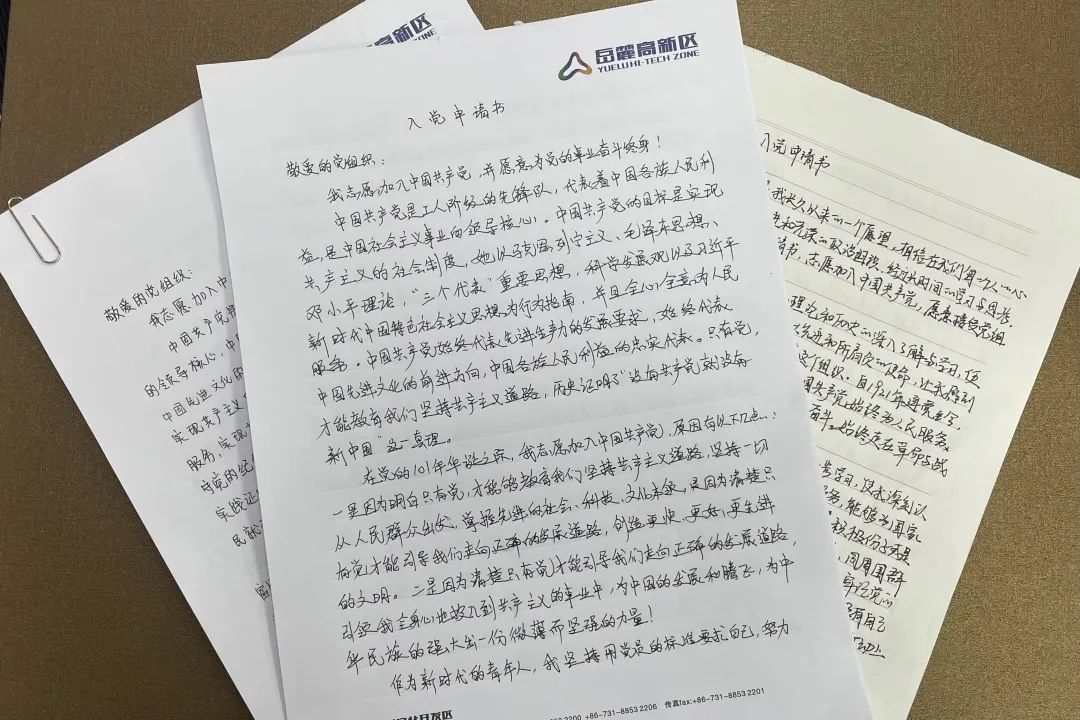 岳麓高新区
YUELU HI-TECH ZONE
入党申请书
敬爱的党组织：
我志愿加入中国共产党，并愿意为党的事业奋斗终身！
中国共产党是工人阶级的先锋队，代表着中国各族人民利
益，是中国社会主义事业的领导核心。中国共产党的目标是实现
共产主义的社会制度，她以马克思列宁主义、毛泽东思想、
邓小平理论，“三个代表”重要思想，科学发展观以及习近平
新时代中国特色社会主义思想为行为指南，并且全心全意为人民
服务。中国共产党始终代表先进生产力的发展要求，始终代表
中国先进文化的前进方向，中国各族人民利益的忠实代表。只有党，
才能教育我们坚持共产主义道路，历史证明了“没有共产党就没有
新中国”这一真理。
在党的101年华诞之际，我志愿加入中国共产党，原因有以下几点：
一是因为明白只有党，才能够教育我们坚持共产主义道路，坚持一切
从人民群众出发，掌握先进的社会、科技、文化未来，是因为清楚只
有党才能引导我们走向正确的发展道路，创造更快、更好、更先进
的文明。二是因为清楚只有党才能引导我们走向正确的发展道路，
引领我全身心地投入到共产主义的事业中，为中国的发展和腾飞，为中
华民族的强大出一份微薄而坚强的力量！
作为新时代的青年人，我坚持用党员的标准要求自己，努力
2200 +86-731-8853 2206 传真fax:+86-731-8853 2201
高新区
ZONE
敬爱的党组织：
我志愿加入中
中国共产党
的领导核心，中
中国先进文化的
实现共产主义
服务，实现
民献
入党申请书
我长久以来的一个愿望，相信在我们每一个人的心
请书，志愿加入中国共产党，愿意接受党组
理论和历史的深入了解与学习，使
这个组织。自1921年建党至今，
国共产党始终为人民服务，
奋斗，始终走在革命与战